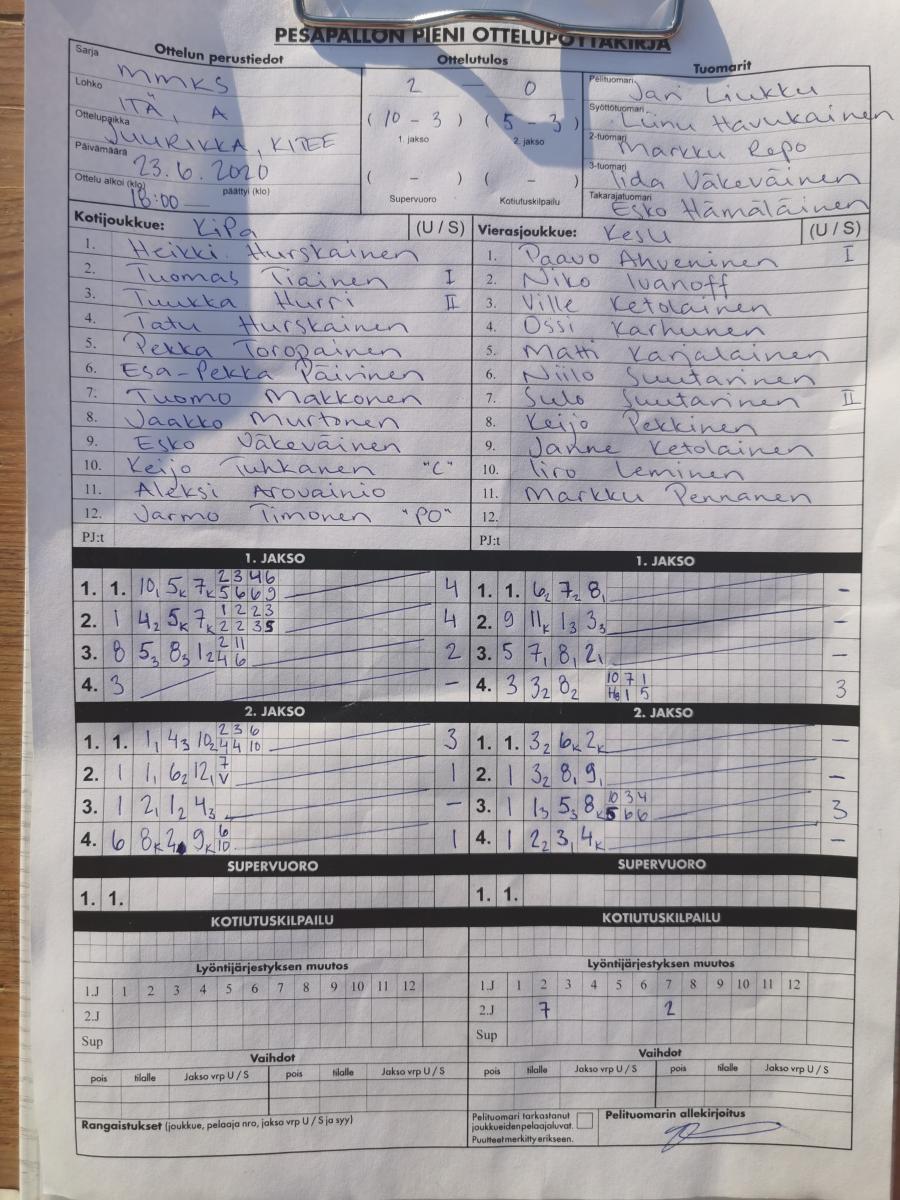 PESÄPALLON PIENI OTTELUPÖYTÄKIRJA
Ottelun perustiedot
Sarja MMKS
Lohko ITÄ, A
Ottelupaikka JUURIKKA, KITEE
Päivämäärä 23.6.2020
Ottelu alkoi (klo) 18:00 päättyi (klo)
Ottelutulos
2 — 0
(10 - 3) (5 - 3)
1. jakso 2. jakso
( - ) ( - )
Supervuoro Kotiutuskilpailu
Tuomarit
Pelituomari Jari Liukku
Syöttötuomari Liinu Havukainen
2-tuomari Markku Repo
3-tuomari Iida Väkeväinen
Takarajatuomari Esko Hämäläinen
Kotijoukkue: KiPa (U / S)
1. Heikki Hurskainen
2. Tuomas Tiainen I
3. Tuukka Hurri II
4. Tatu Hurskainen
5. Pekka Toropainen
6. Esa-Pekka Päivinen
7. Tuomo Makkonen
8. Jaakko Murtonen
9. Esko Väkeväinen
10. Keijo Tuhkanen "C"
11. Aleksi Arovainio
12. Jarmo Timonen "PO"
PJ:t
Vierasjoukkue: KeSu (U / S)
1. Paavo Ahveninen I
2. Niko Ivanoff
3. Ville Ketolainen
4. Ossi Karhunen
5. Matti Karjalainen
6. Niilo Suutarinen
7. Sulo Suutarinen II
8. Keijo Pekkinen
9. Janne Ketolainen
10. Iiro Leminen
11. Markku Pennanen
12.
PJ:t
1. JAKSO
1. 1. 10₁ 5ₖ 7ₖ 2 3 4 6 4
5 6 6 9
2. 1 4₂ 5ₖ 7ₖ 1 2 2 3 4
2 2 3 5
3. 8 5₃ 8₃ 1₂ 2 11 2
4 6
4. 3 –
1. JAKSO
1. 1. 6₂ 7₂ 8₁ –
2. 9 11ₖ 1₃ 3₃ –
3. 5 7₁ 8₁ 2₁ –
4. 3 3₂ 8₂ 10 7 1 3
1 5
2. JAKSO
1. 1. 1₁ 4₃ 10₂ 2 3 6 3
4 4 10
2. 1 1₁ 6₂ 12₁ 7 1
V
3. 1 2₁ 1₂ 4₃ –
4. 6 8ₖ 2 9ₖ 6 1
10
2. JAKSO
1. 1. 3₂ 6ₖ 2ₖ –
2. 1 3₂ 8₁ 9₁ –
3. 1 1₃ 5₃ 8ₖ 10 3 4 3
5 6 6
4. 1 2₂ 3₁ 4ₖ –
SUPERVUORO
1. 1.
SUPERVUORO
1. 1.
KOTIUTUSKILPAILU
KOTIUTUSKILPAILU
Lyöntijärjestyksen muutos
1.J 1 2 3 4 5 6 7 8 9 10 11 12
2.J
Sup
Lyöntijärjestyksen muutos
1.J 1 2 3 4 5 6 7 8 9 10 11 12
2.J 7 2
Sup
Vaihdot
pois tilalle Jakso vrp U / S pois tilalle Jakso vrp U / S
Vaihdot
pois tilalle Jakso vrp U / S pois tilalle Jakso vrp U / S
Rangaistukset (joukkue, pelaaja nro, jakso vrp U / S ja syy)
Pelituomari tarkastanut
joukkueiden pelaajaluvat.
Puutteet merkitty erikseen.
Pelituomarin allekirjoitus